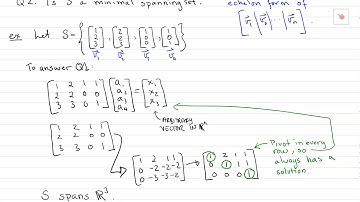 Q2. Is S a minimal spanning set.
echelon form of
[v₁ | v₂ | ... | vₙ]
ex Let S = { [1 2 3], [2 2 3], [1 0 0], [1 0 1] }
v₁ v₂ v₃ v₄
To answer Q1:
[1 2 1 1] [a₁] = [x₁]
[2 2 0 0] [a₂] [x₂]
[3 3 0 1] [a₃] [x₃]
[a₄]
ARBITRARY
VECTOR IN ℝ³
[1 2 1 1]
[2 2 0 0]
[3 3 0 1]
[1 2 1 1]
[0 -2 -2 -2]
[0 -3 -3 -2]
[1 2 1 1]
[0 1 1 1]
[0 0 0 1]
Pivot in every
row, so
always has a
solution.
S spans ℝ³